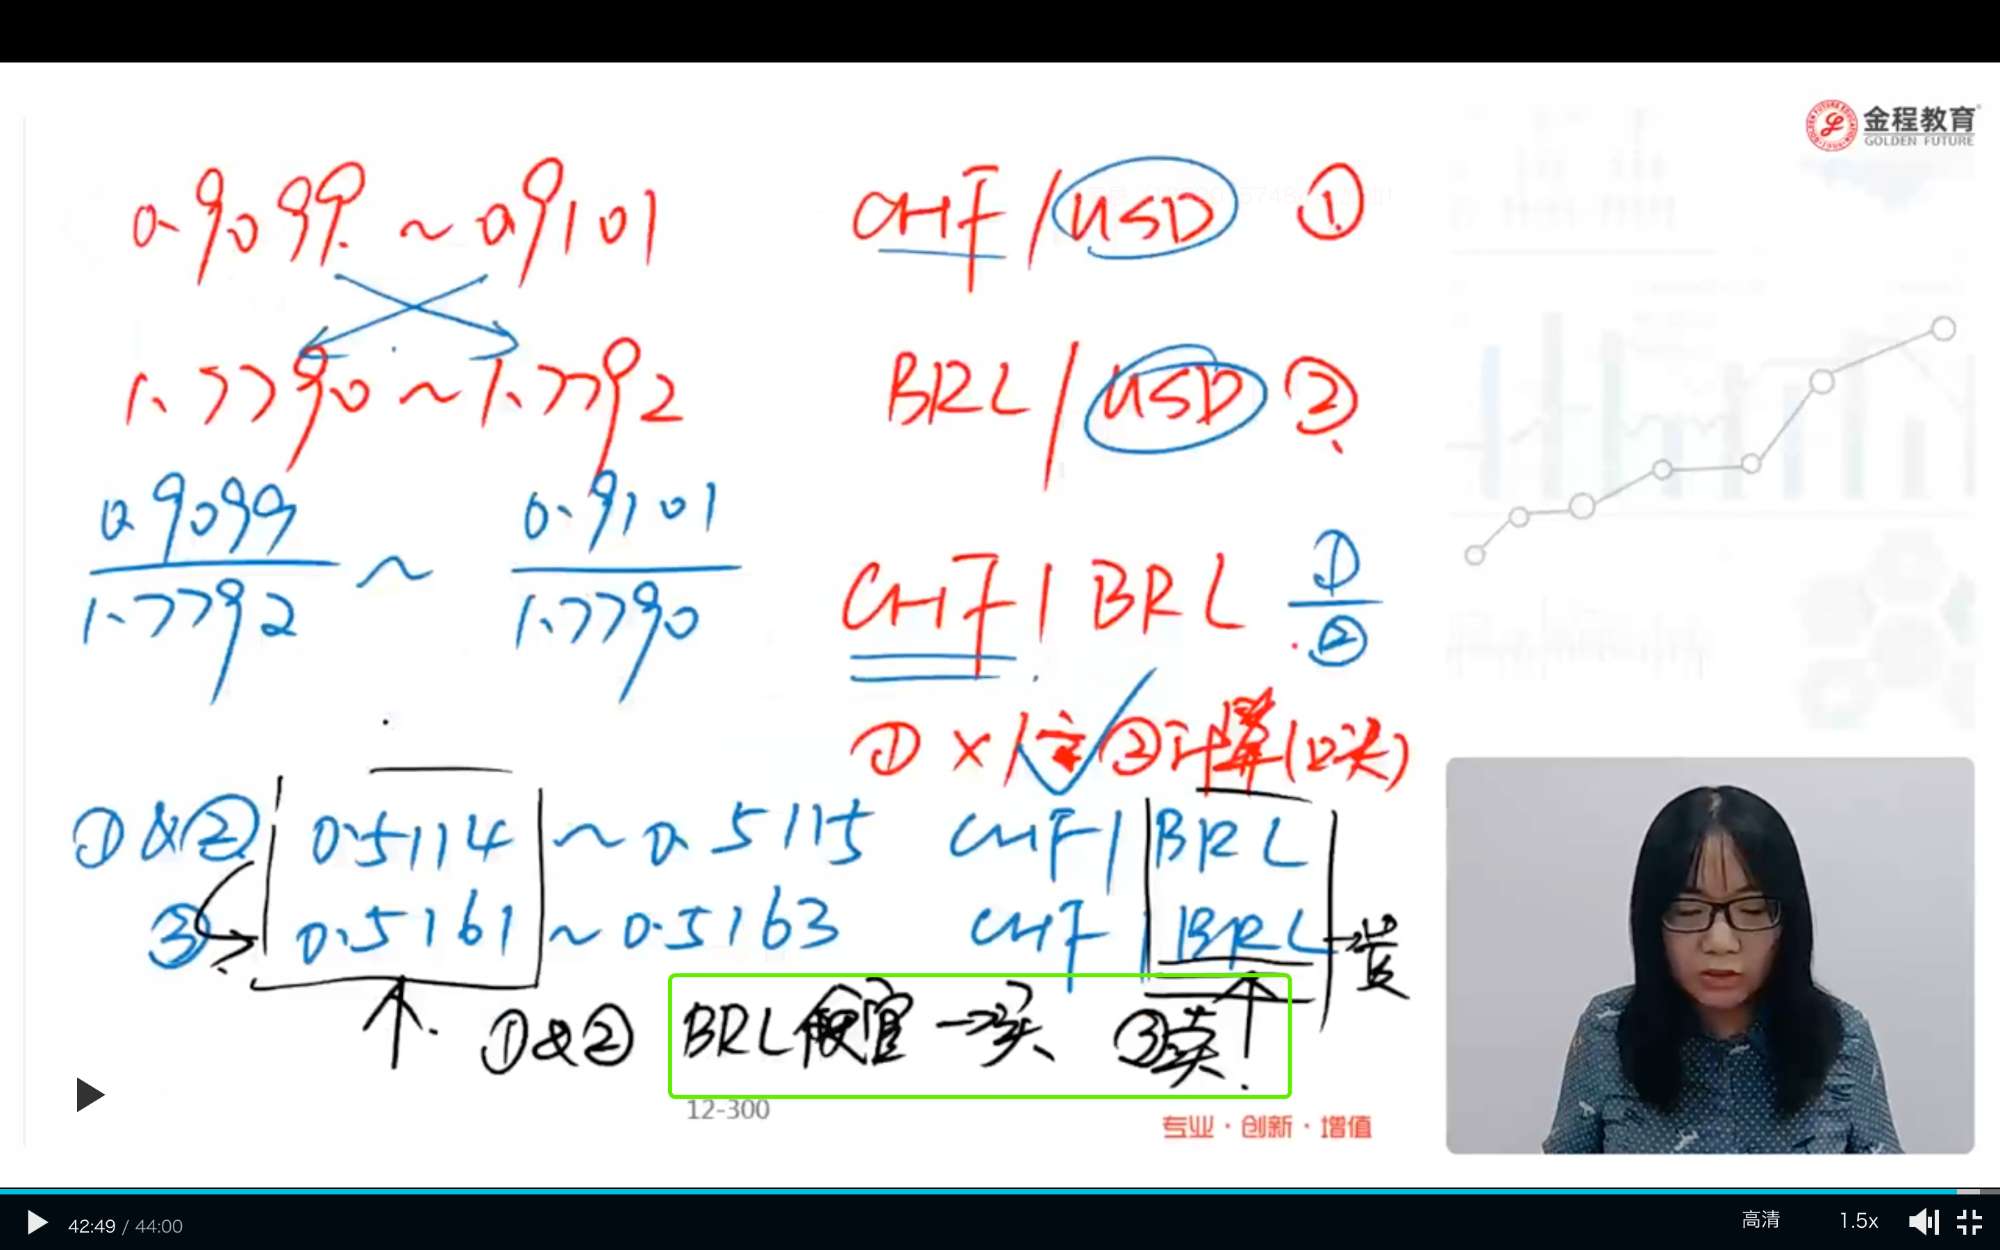 金程教育
GOLDEN FUTURE
0.9099 ~ 0.9101 CHF/USD ①
1.7790 ~ 1.7792 BRL/USD ②
0.9099/1.7792 ~ 0.9101/1.7790 CHF/BRL ①/②
① × ②计算(口头)
①&② 0.5114 ~ 0.5115 CHF/BRL
③ 0.5161 ~ 0.5163 CHF/BRL →贵
①&② BRL便宜→买 ③卖
12-300
专业·创新·增值
42:49 / 44:00
高清 1.5x